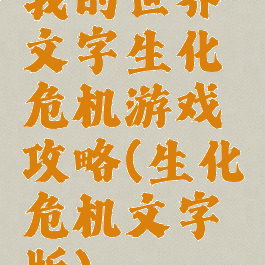 我的世界
文字生化
危机游戏
攻略(生化
危机文字
版)